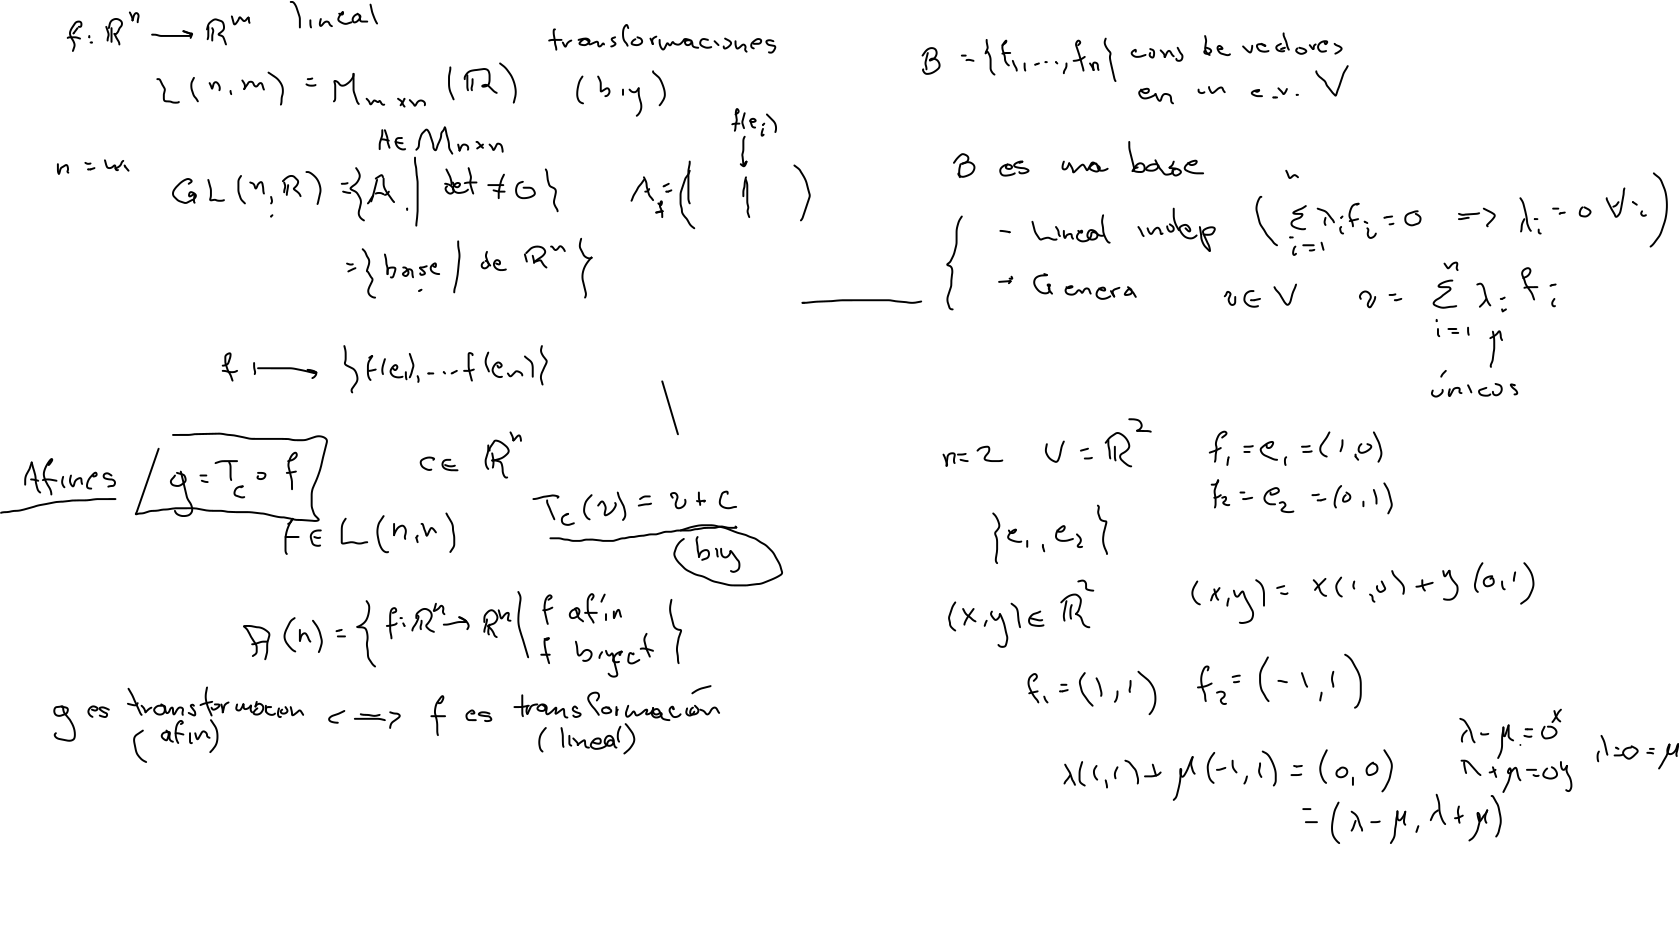 f: ℝⁿ ⟶ ℝᵐ lineal
transformaciones
L(n,m) = M_{m×n}(ℝ) (biy)
n = m
A ∈ M_{n×n}
GL(n,ℝ) = {A | det ≠ 0} A_f = ( | )
f(e_i)
↓
= {base | de ℝⁿ}
f ⟼ {f(e₁),...f(en)}
Afines
g = T_c ∘ f
c ∈ ℝⁿ
f ∈ L(n,n)
T_c(v) = v + c
biy
A(n) = {f: ℝⁿ → ℝⁿ | f afín
f biyect}
g es transformacion <=> f es transformación
(afin) (lineal)
B = {f₁,...,fn} conj de vectores
en un e.v. V
B es una base
- Lineal indep (∑_{i=1}^n λ_i f_i = 0 => λ_i = 0 ∀i)
→ Genera v ∈ V v = ∑_{i=1}^n λ_i f_i
únicos
n=2 V = ℝ² f₁ = e₁ = (1,0)
f₂ = e₂ = (0,1)
{e₁, e₂}
(x,y) ∈ ℝ² (x,y) = x(1,0) + y(0,1)
f₁ = (1,1) f₂ = (-1,1)
λ(1,1) + μ(-1,1) = (0,0)
= (λ-μ, λ+μ)
λ - μ = 0 x
λ + μ = 0 y
λ=0=μ